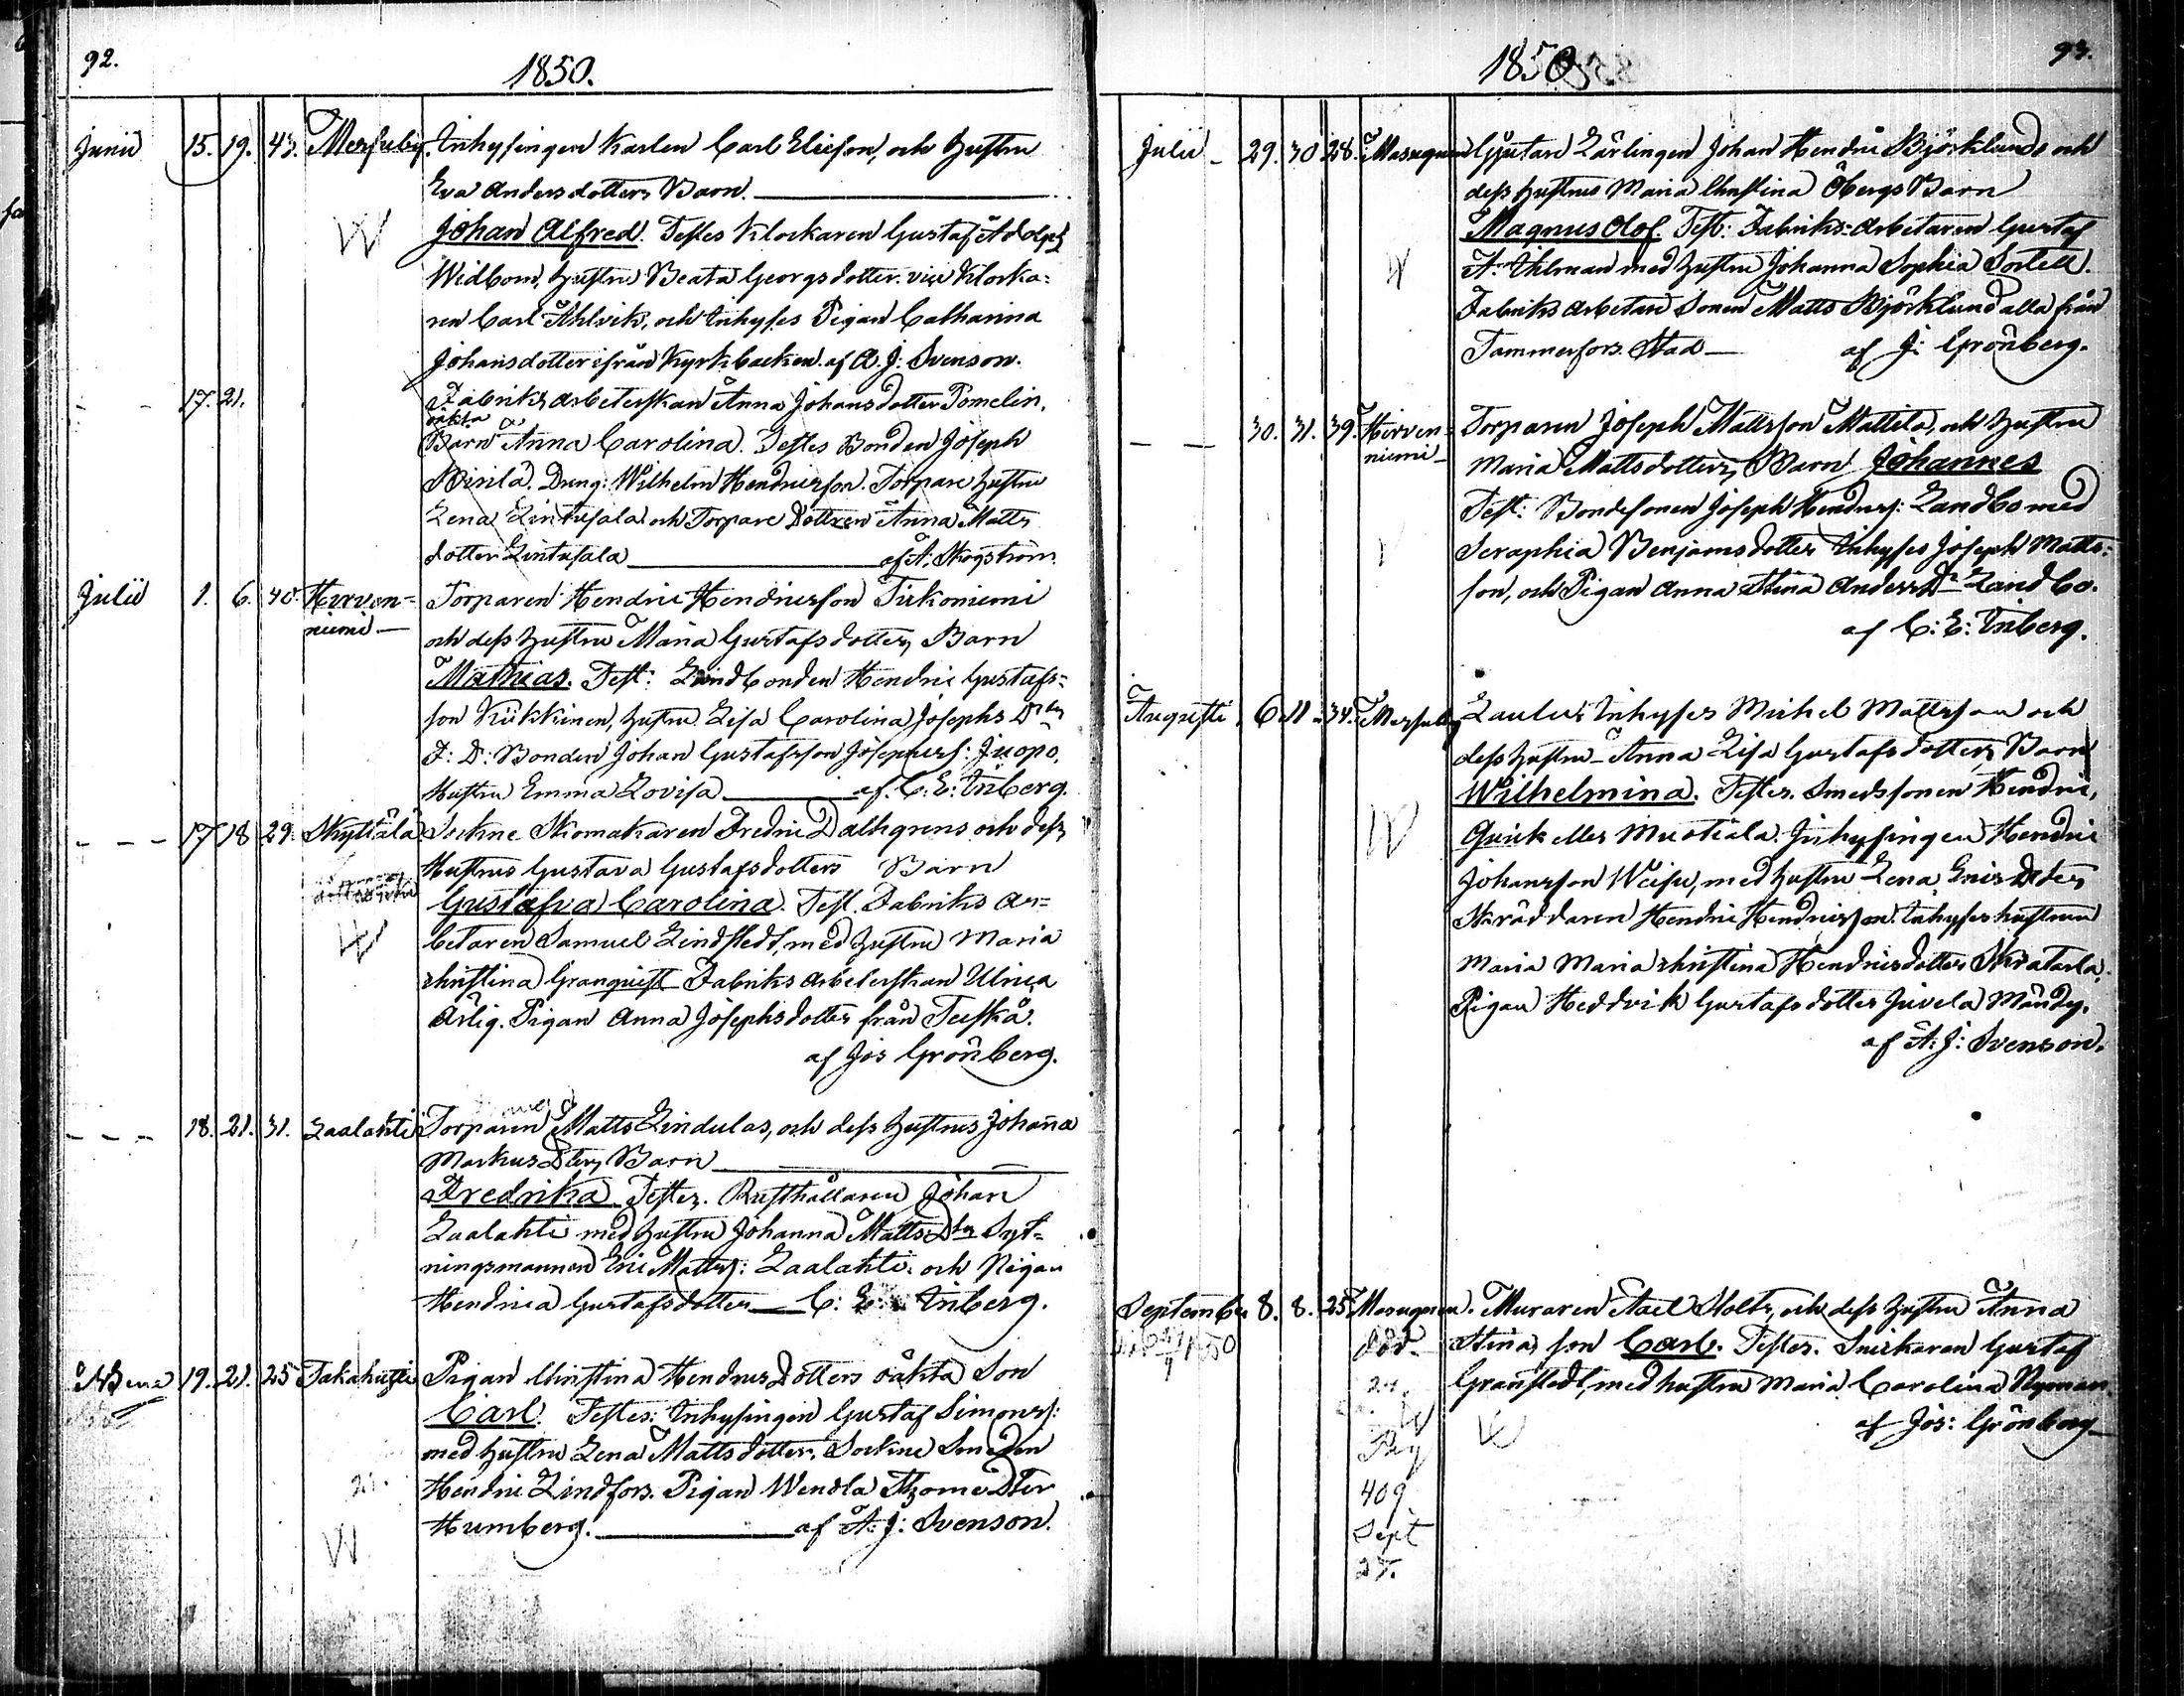 92.
1850.
Junii 15. 19. 43. Mersuby. Inhysingen Karlen Carl Elieson, och hustru
Eva Andersdotters Barn.
Johan Alfred. Testes Klockaren Gustaf Adolph
Widbom, hustru Beata Georgsdotter. vice Klocka-
ren Carl Ahlvik, och Inhyses Pigan Catharina
Johansdotter ifrån Kyrkbacken. af A. J: Svenson.
17. 21. Fabriks arbeterskan Anna Johansdotter Pomelin,
oäkta
Barn Anna Carolina. Testes Bonden Joseph
Drung: Wilhelm Hendricsson. Torpare hustru
Lena Lintusala och Torpare Dottren Anna Matts
dotter Lintusala af A. Skogström.
Julii 1. 6. 40. Hirven-
niemi
Torparen Hendric Hendricsson Tirkoniemi
och dess hustru Maria Gustafsdotters Barn
Mathias. Test: Landbonden Hendric Gustafs-
son Kiikkinen, hustru Lisa Carolina Josephs Dr
T: D: Bonden Johan Gustafsson Josephurs: Juopo,
Hustru Emma Lovisa af C: E: Inberg.
17 18 29. Skyttälä Sockne Skomakaren Fredric Dalhgrens och dess
Hustrus Gustava Gustafsdotters Barn
Gustafva Carolina. Test. Fabriks ar-
betaren Samuel Lindstedt, med hustru Maria
christina Granquist Fabriks arbeterskan Ulrica
Ärlig. Pigan Anna Josephsdotter från Teiskå.
af Jos Grönberg.
18. 21. 31. Laalahti Torparen Matts Lindulas, och dess hustrus Johanna
Markus Dters Barn
Fredrika Testes. Rusthållaren Johan
Laalahti med hustru Johanna Matts Dter Syt-
ningsmannen Eric Matts: Laalahti och Pigan
Hendrica Gustafsdotter C: E: Inberg.
19. 21. 25 Takahuhti Pigan Christina Hendrics Dotters oäkta Son
Carl. Testes: Inhysingen Gustaf Simons:
med hustru Lena Mattsdotter, Sockne Smeden
Hendric Lindfors. Pigan Wendla Thome Dter
Humberg. af A: J: Svenson.
1850
93.
Julii 29. 30 28. Masugnen Gjutare Lärlingen Johan Hendric Björklunds och
dess hustrus Maria Christina Öbergs Barn
Magnus Olof Test: Fabriks-arbetaren Gustaf
A: Uhlman med hustru Johanna Sophia Sortell.
Fabriks arbetare Sonen Matts Björklund alla från
Tammerfors Stad af J: Grönberg.
30. 31. 39. Hirven-
niemi
Torparen Joseph Mattsson Mattila, och hustru
Maria Mattsdotters Barn Johannes
Test: Bondesonen Joseph Hendrs: Landbo med
Seraphia Benjamsdotter Inhyses Joseph Matts-
son, och Pigan Anna Stina Anders Dr Landbo.
af C: E: Inberg.
Augusti 6 11 34. Mersuby Inhyses Michel Mattsson och
dess hustru Anna Lisa Gustafsdotters Barn
Wilhelmina. Testes. Smedssonen Hendric,
Quick eller Muotiala. Inhysingen Hendric
Johansson Weisu, med hustru Lena Erics Dter
Skräddaren Hendric Hendricsson. Inhyses hustrun
Maria Maria christina Hendricsdotter Skratarla.
Pigan Heddvik Gustafsdotter Juvela Mändy.
af A: J: Svenson.
September 8. 8. 25 Masugnen. Muraren Axel Stolts, och dess hustru Anna
Stinas son Carl. Testes. Snickaren Gustaf
Granstedt, med hustru Maria Carolina Nyman.
af Jos: Grönberg
409
Sept
25.